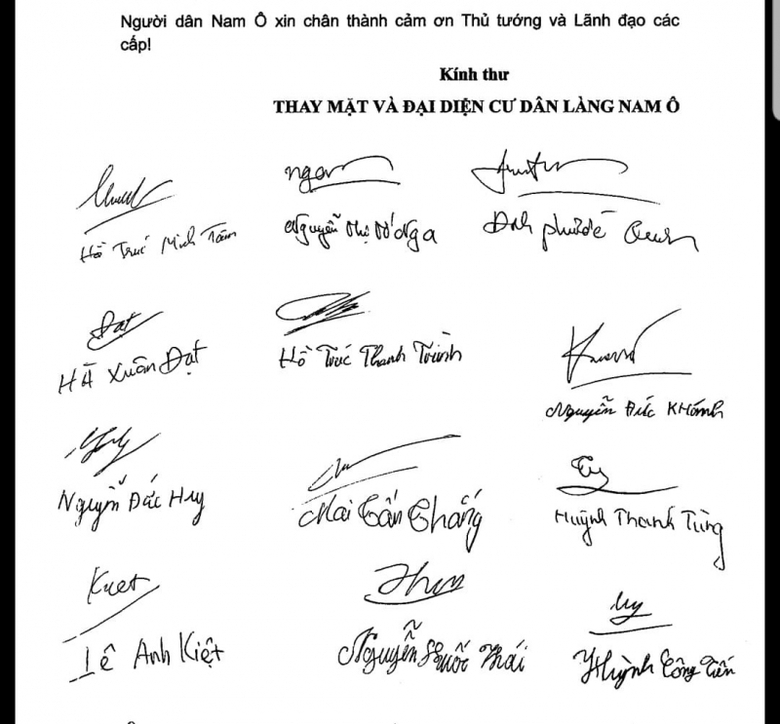 Người dân Nam Ô xin chân thành cảm ơn Thủ tướng và Lãnh đạo các
cấp!
Kính thư
THAY MẶT VÀ ĐẠI DIỆN CƯ DÂN LÀNG NAM Ô
Hồ Trúc Minh Tâm
Nguyễn Thị Nga
Đinh
Đạt
Hà Xuân Đạt
Hồ Trúc Thanh Trình
Nguyễn Đức Khánh
Nguyễn Đắc Huy
Mai Tấn Thắng
Huỳnh Thanh Tùng
Kiet
Lê Anh Kiệt
Nguyễn Phước Thái
Huỳnh Công Tiến